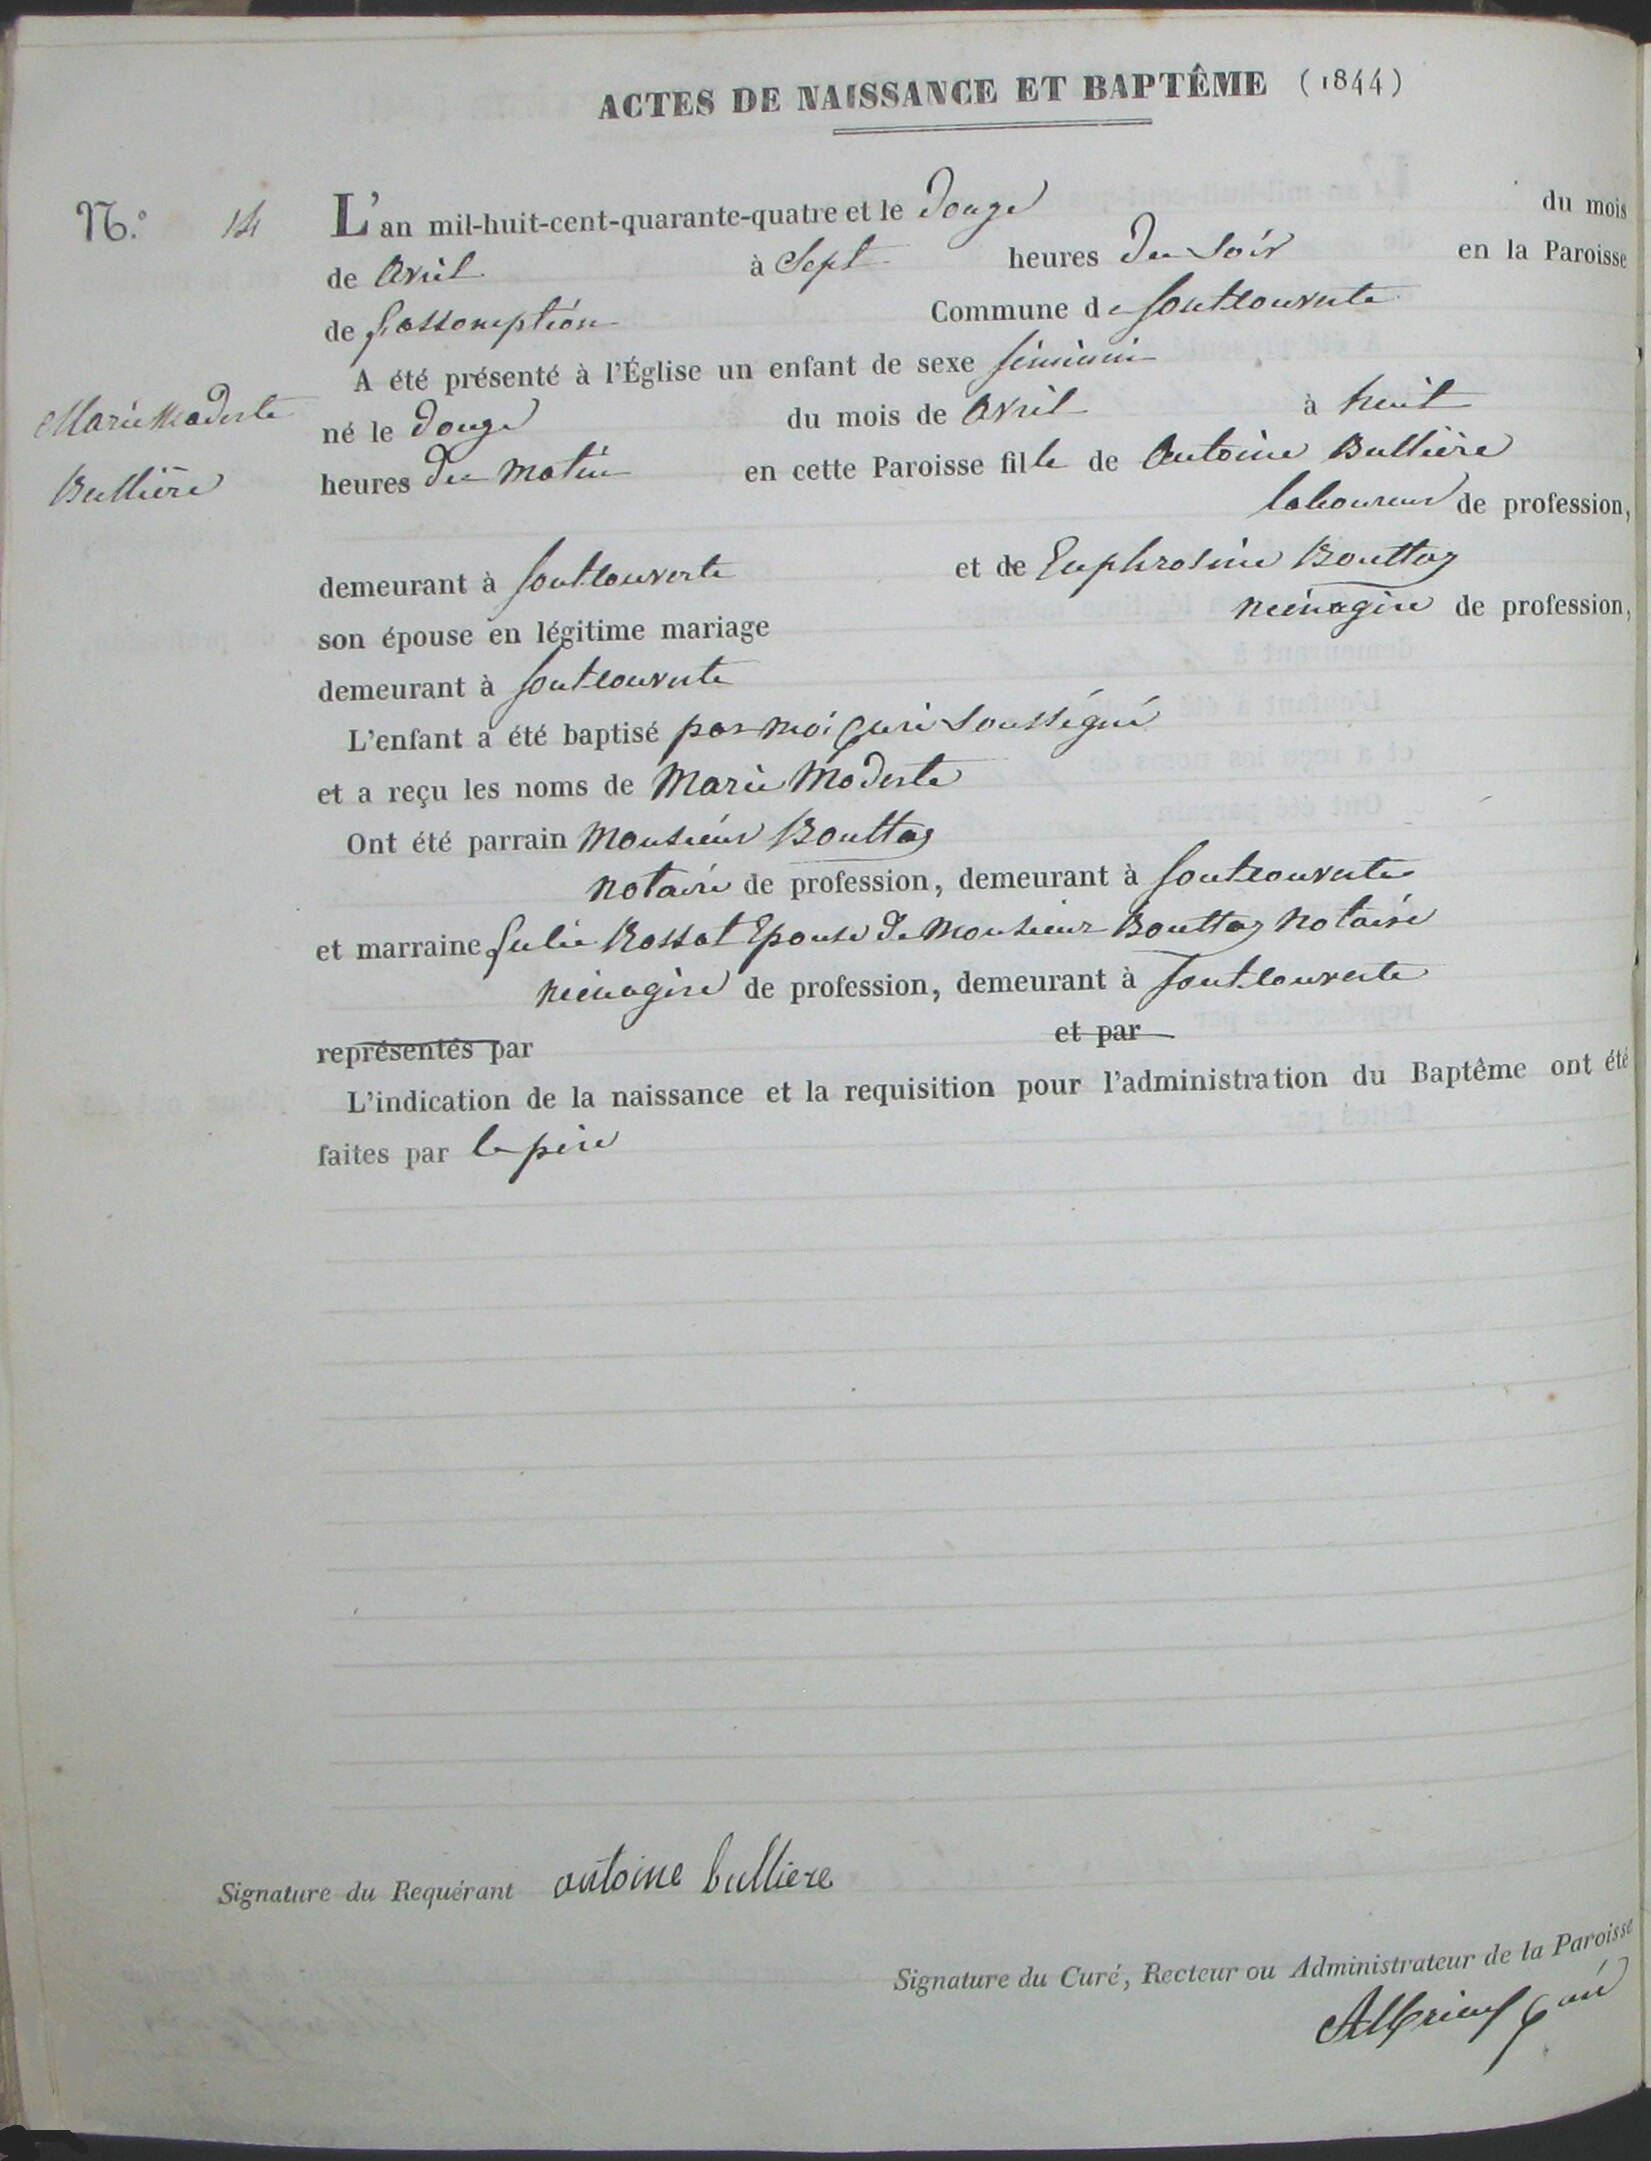 ACTES DE NAISSANCE ET BAPTÊME (1844)
N.º 14
L'an mil-huit-cent-quarante-quatre et le douze du mois
de Avril à Sept heures du Soir en la Paroisse
de l'assomption Commune de Soutcouverte
A été présenté à l'Église un enfant de sexe féminin
Marie Modeste
né le douze du mois de Avril à huit
Bullière
heures du matin en cette Paroisse fille de Antoine Bullière
laboureur de profession,
demeurant à Fontcouverte et de Euphrosine Bouttaz
son épouse en légitime mariage ménagère de profession,
demeurant à Fontcouverte
L'enfant a été baptisé par moi Curé Soussigné
et a reçu les noms de Marie Modeste
Ont été parrain Monsieur Bouttaz
notaire de profession, demeurant à Fontcouverte
et marraine Julie Rossat Epouse de Monsieur Bouttaz Notaire
ménagère de profession, demeurant à Fontcouverte
représentés par et par
L'indication de la naissance et la requisition pour l'administration du Baptême ont été
faites par le père
Signature du Requérant antoine bulliere
Signature du Curé, Recteur ou Administrateur de la Paroisse
curé